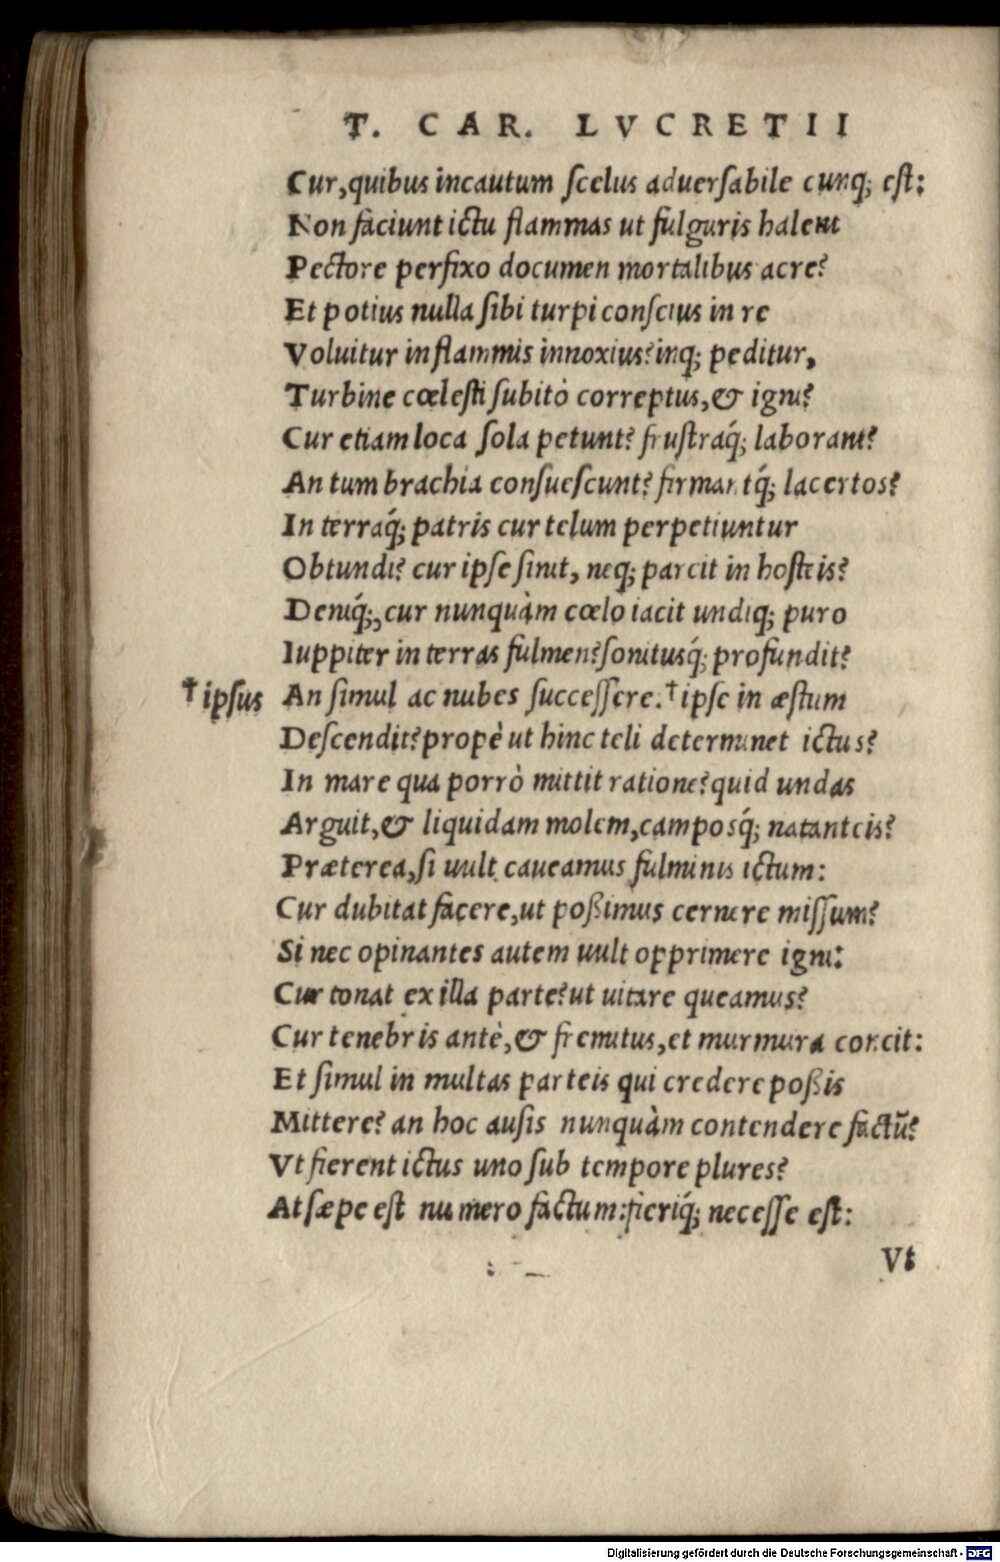 T. CAR. LVCRETII
Cur, quibus incautum ſcelus aduerſabile cunq; eſt:
Non faciunt ictu flammas ut fulguris halent
Pectore perfixo documen mortalibus acre?
Et potius nulla ſibi turpi conſcius in re
Voluitur in flammis innoxius? inq; peditur,
Turbine cœleſti ſubitò correptus, & igni?
Cur etiam loca ſola petunt? fruſtraq́; laborant?
An tum brachia conſueſcunt? firmantq́; lacertos?
In terraq́; patris cur telum perpetiuntur
Obtundi? cur ipſe ſinit, neq; parcit in hoſteis?
Deniq́;, cur nunquàm cœlo iacit undiq; puro
Iuppiter in terras fulmen? ſonitusq́; profundit?
†ipſus An ſimul ac nubes ſucceſſere: †ipſe in æſtum
Deſcendit? propè ut hinc teli determinet ictus?
In mare qua porrò mittit ratione? quid undas
Arguit, & liquidam molem, camposq́; natanteis?
Præterea, ſi uult caueamus fulminis ictum:
Cur dubitat facere, ut poßimus cernere miſſum?
Si nec opinantes autem uult opprimere igni:
Cur tonat ex illa parte? ut uitare queamus?
Cur tenebris antè, & fremitus, et murmura concit:
Et ſimul in multas parteis qui credere poßis
Mittere? an hoc auſis nunquàm contendere factũ?
Vt fierent ictus uno ſub tempore plures?
At ſæpe eſt numero factum: fieriq́; neceſſe eſt:
Vt
Digitalisierung gefördert durch die Deutsche Forschungsgemeinschaft - DFG